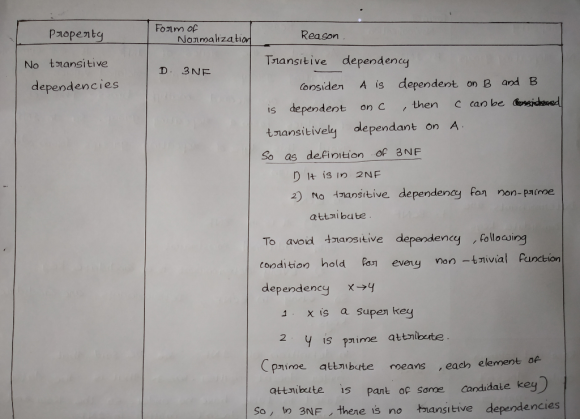 Property
Form of
Normalization
Reason
No transitive
dependencies
D. 3NF
Transitive dependency
Consider A is dependent on B and B
is dependent on C , then C can be
transitively dependant on A.
So as definition of 3NF
1) It is in 2NF
2) No transitive dependency for non-prime
attribute.
To avoid transitive dependency , following
condition hold for every non-trivial function
dependency X→Y
1. X is a super key
2 Y is prime attribute.
(prime attribute means , each element of
attribute is part of some candidate key)
So, in 3NF , there is no transitive dependencies